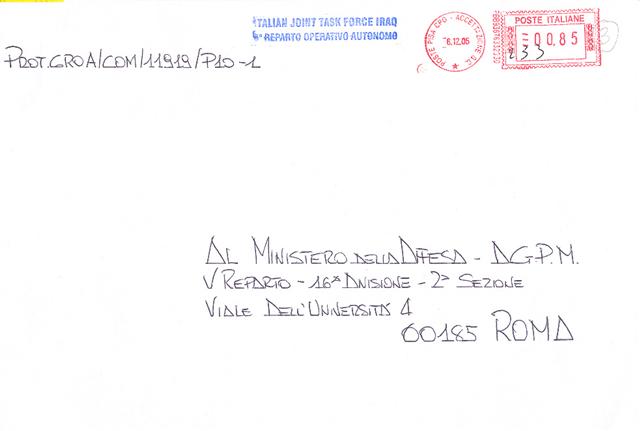 ITALIAN JOINT TASK FORCE IRAQ
6° REPARTO OPERATIVO AUTONOMO
POSTE PISA CPO - ACCETTAZIONE G.C.
-6.12.05
POSTE ITALIANE
=00.85
233
3
PROT. GROA/COM/11919/P10-1
AL MINISTERO DELLA DIFESA - D.G.P.M.
V REPARTO - 16ª DIVISIONE - 2ª SEZIONE
VIALE DELL'UNIVERSITÀ 4
00185 ROMA